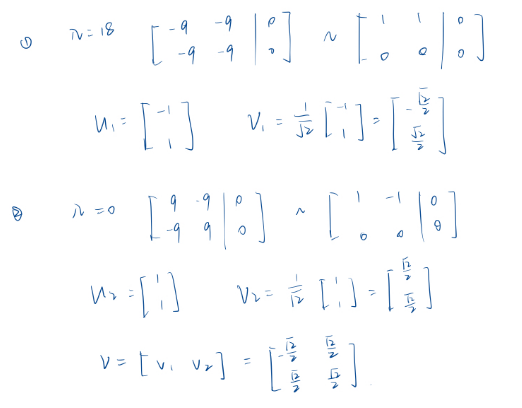 ① λ=18 [ -9 -9 | 0 ; -9 -9 | 0 ] ~ [ 1 1 | 0 ; 0 0 | 0 ]
u₁ = [ -1 ; 1 ] v₁ = 1/√2 [ -1 ; 1 ] = [ -√2/2 ; √2/2 ]
② λ=0 [ 9 -9 | 0 ; -9 9 | 0 ] ~ [ 1 -1 | 0 ; 0 0 | 0 ]
u₂ = [ 1 ; 1 ] v₂ = 1/√2 [ 1 ; 1 ] = [ √2/2 ; √2/2 ]
V = [ v₁ v₂ ] = [ -√2/2 √2/2 ; √2/2 √2/2 ].